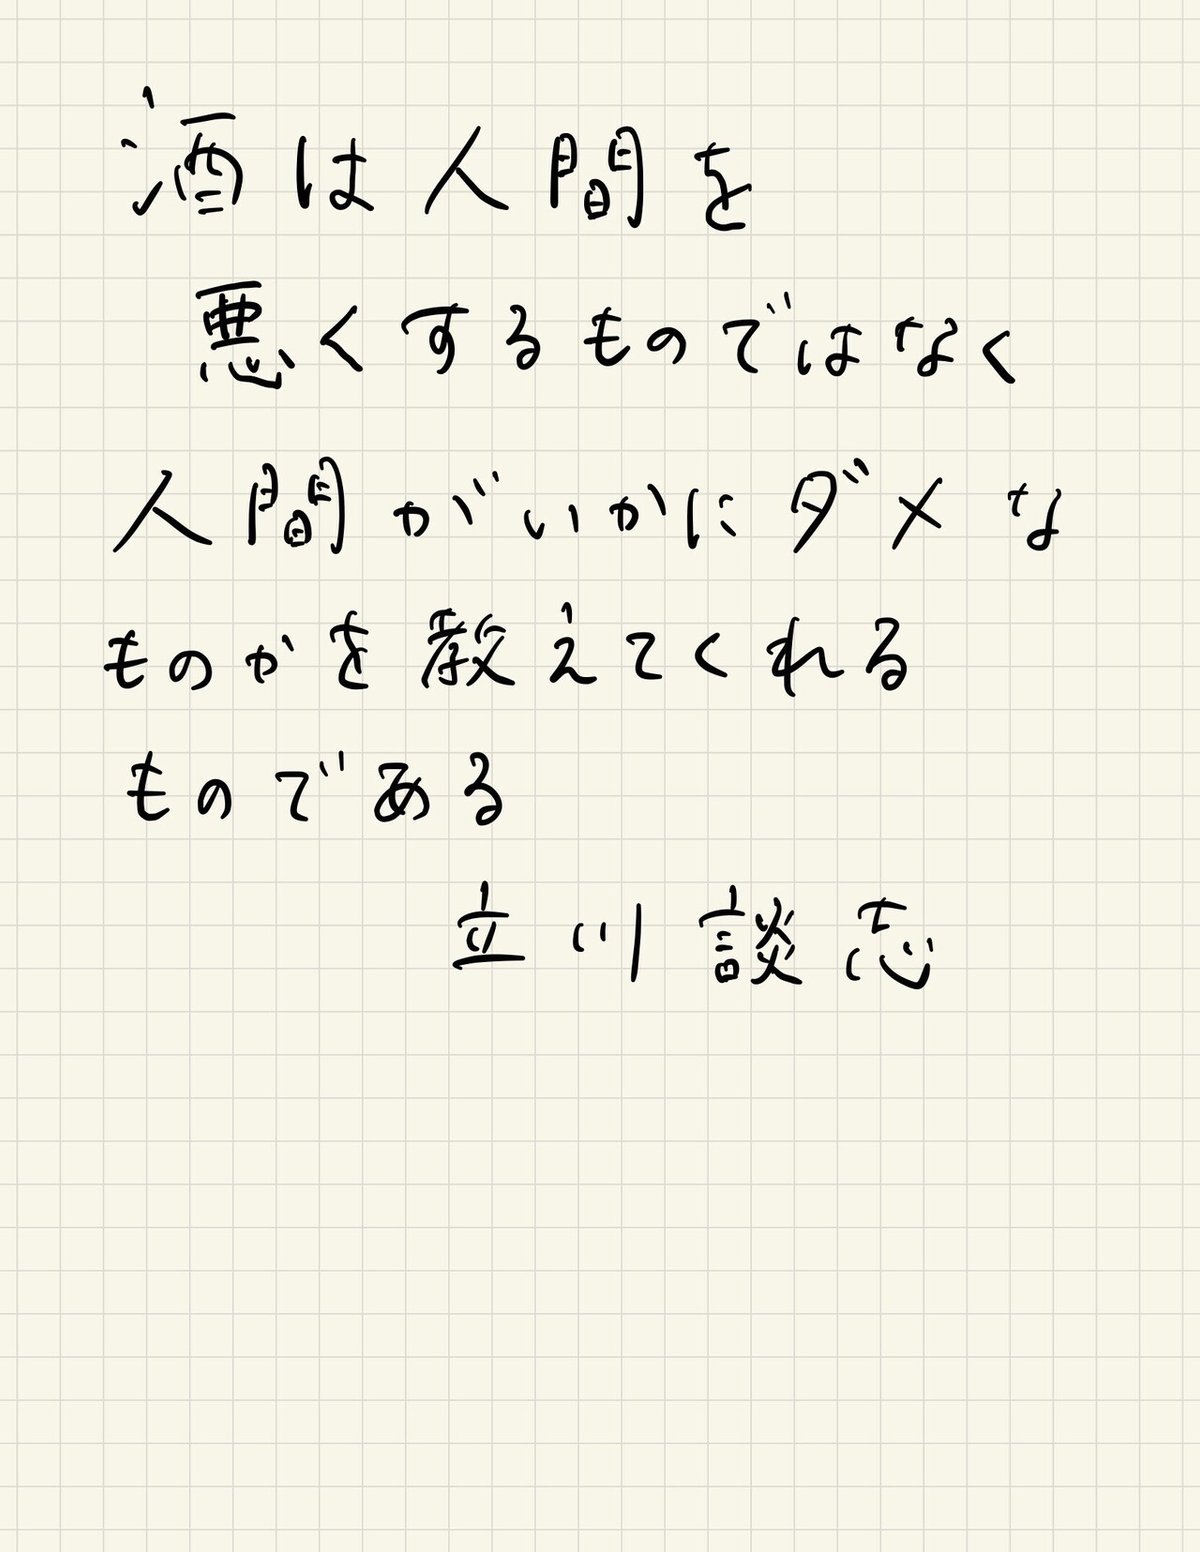 酒は人間を
悪くするものではなく
人間がいかにダメな
ものかを教えてくれる
ものである
立川談志